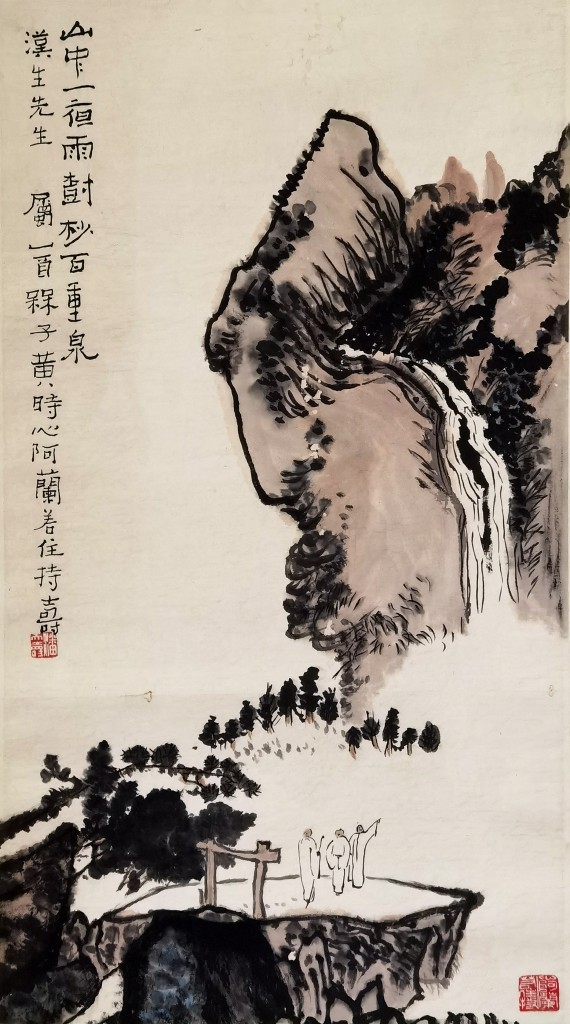 山中一夜雨樹杪百重泉
漢生先生 屬 槑子黃時心阿蘭若住持壽
潘天壽